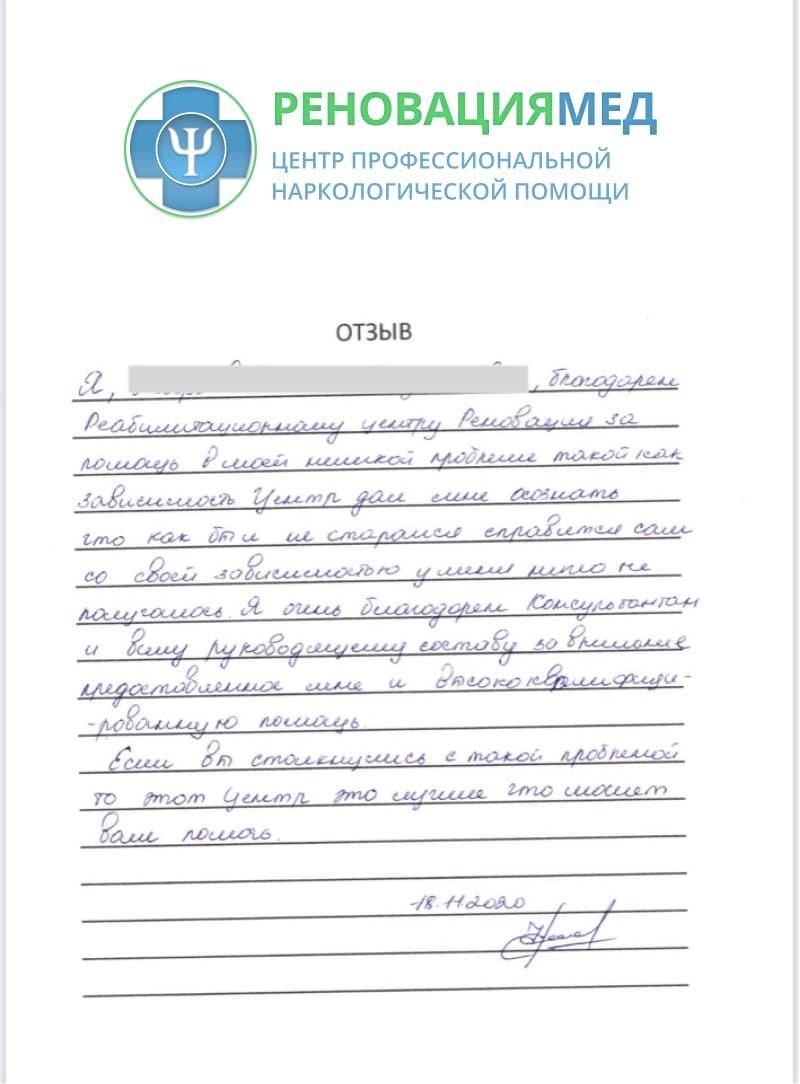 РЕНОВАЦИЯМЕД
ЦЕНТР ПРОФЕССИОНАЛЬНОЙ
НАРКОЛОГИЧЕСКОЙ ПОМОЩИ
ОТЗЫВ
Я, , благодарен
Реабилитационному центру Реновация за
помощь в моей нелегкой проблеме такой как
зависимость Центр дал мне осознать
что как бы я не старался справится сам
со своей зависимостью у меня ничего не
получалось. Я очень благодарен Консультантам
и всему руководящему составу за внимание
предоставленное мне и высококвалифици-
-рованную помощь.
Если вы столкнулись с такой проблемой
то этот Центр это лучшее что может
вам помочь.
18.11.2020